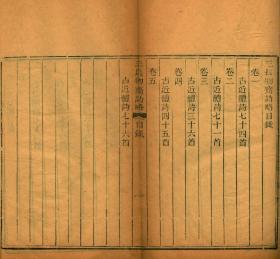 三長物齋詩略目錄
卷一
古近體詩七十四首
卷二
古近體詩七十一首
卷三
古近體詩三十六首
卷四
古近體詩四十五首
卷五
古近體詩七十六首
三長物齋詩略 目錄